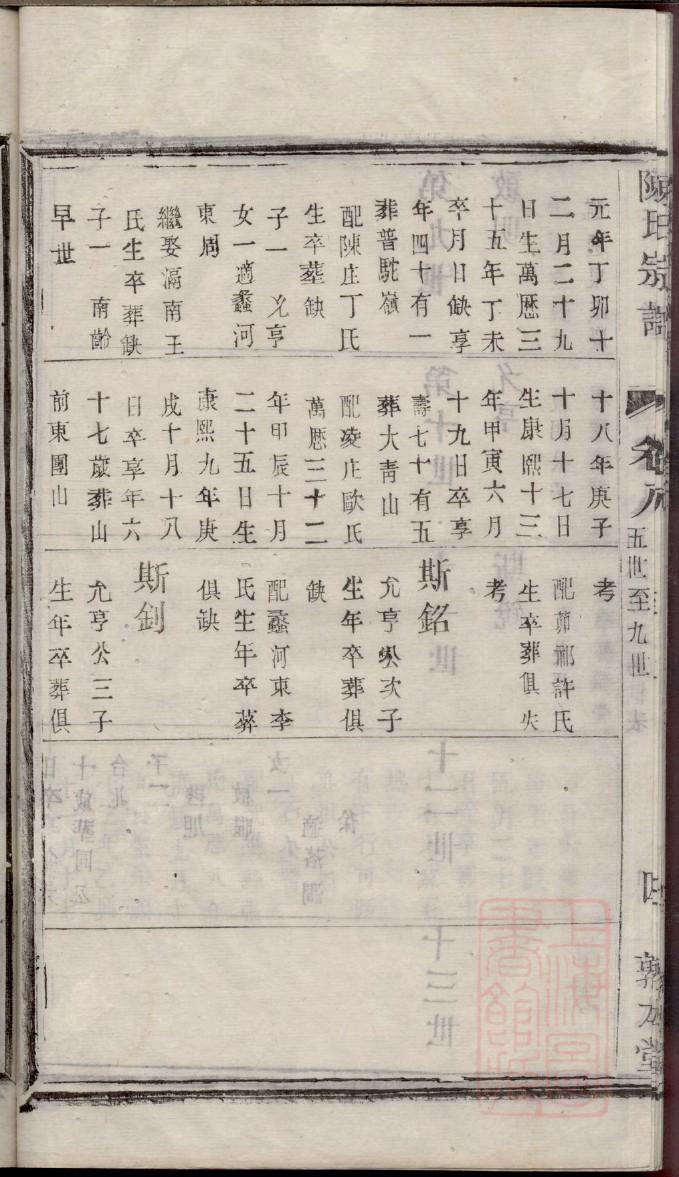 陳氏宗譜
卷八
五世至九世
敦本堂
元年丁卯十
二月二十九
日生萬歷三
十五年丁未
卒月日缺享
年四十有一
葬普駝嶺
配陳庄丁氏
生卒葬缺
子一 允亨
女一適蠡河
東周
繼娶滆南王
氏生卒葬缺
子一 南齡
早世
十八年庚子
十月十七日
生康熙十三
年甲寅六月
十九日卒享
壽七十有五
葬大靑山
配凌庄歐氏
萬歷三十二
年甲辰十月
二十五日生
康熙九年庚
戌十月十八
日卒享年六
十七歲葬山
前東團山
考
配茆祁許氏
生卒葬俱失
考
斯銘
允亨公次子
生年卒葬俱
缺
配蠡河東李
氏生年卒葬
俱缺
斯釗
允亨公三子
生年卒葬俱